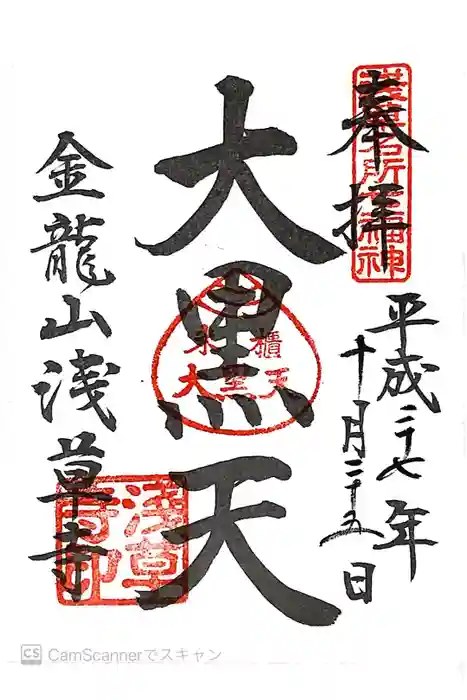 奉拝
浅草名所七福神
平成二十七年
十月二十五日
大黒天
米櫃
大黒天
金龍山浅草寺
浅草
寺印
CS CamScannerでスキャン